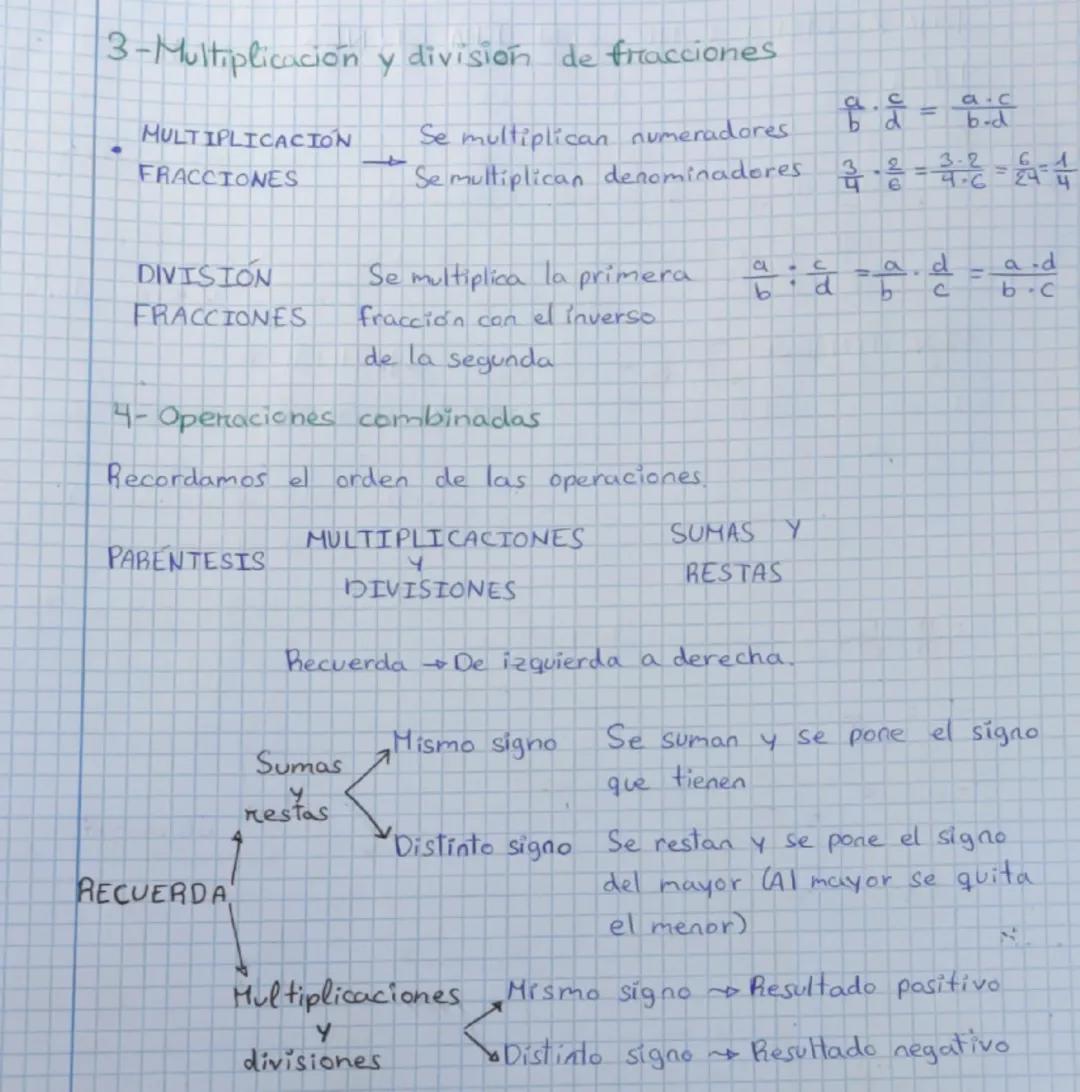 3-Multiplicación y división de fracciones
MULTIPLICACIÓN FRACCIONES → Se multiplican numeradores a/b · c/d = a·c/b·d
Se multiplican denominadores 3/4 · 2/6 = 3·2/4·6 = 6/24 = 1/4
DIVISIÓN Se multiplica la primera a/b : c/d = a/b · d/c = a·d/b·c
FRACCIONES fracción con el inverso
de la segunda
4- Operaciones combinadas
Recordamos el orden de las operaciones.
PARÉNTESIS
MULTIPLICACIONES
Y
DIVISIONES
SUMAS Y
RESTAS
Recuerda → De izquierda a derecha.
RECUERDA
Sumas
y
restas
Mismo signo Se suman y se pone el signo
que tienen
Distinto signo Se restan y se pone el signo
del mayor (Al mayor se quita
el menor)
Multiplicaciones
y
divisiones
Mismo signo → Resultado positivo
Distinto signo → Resultado negativo